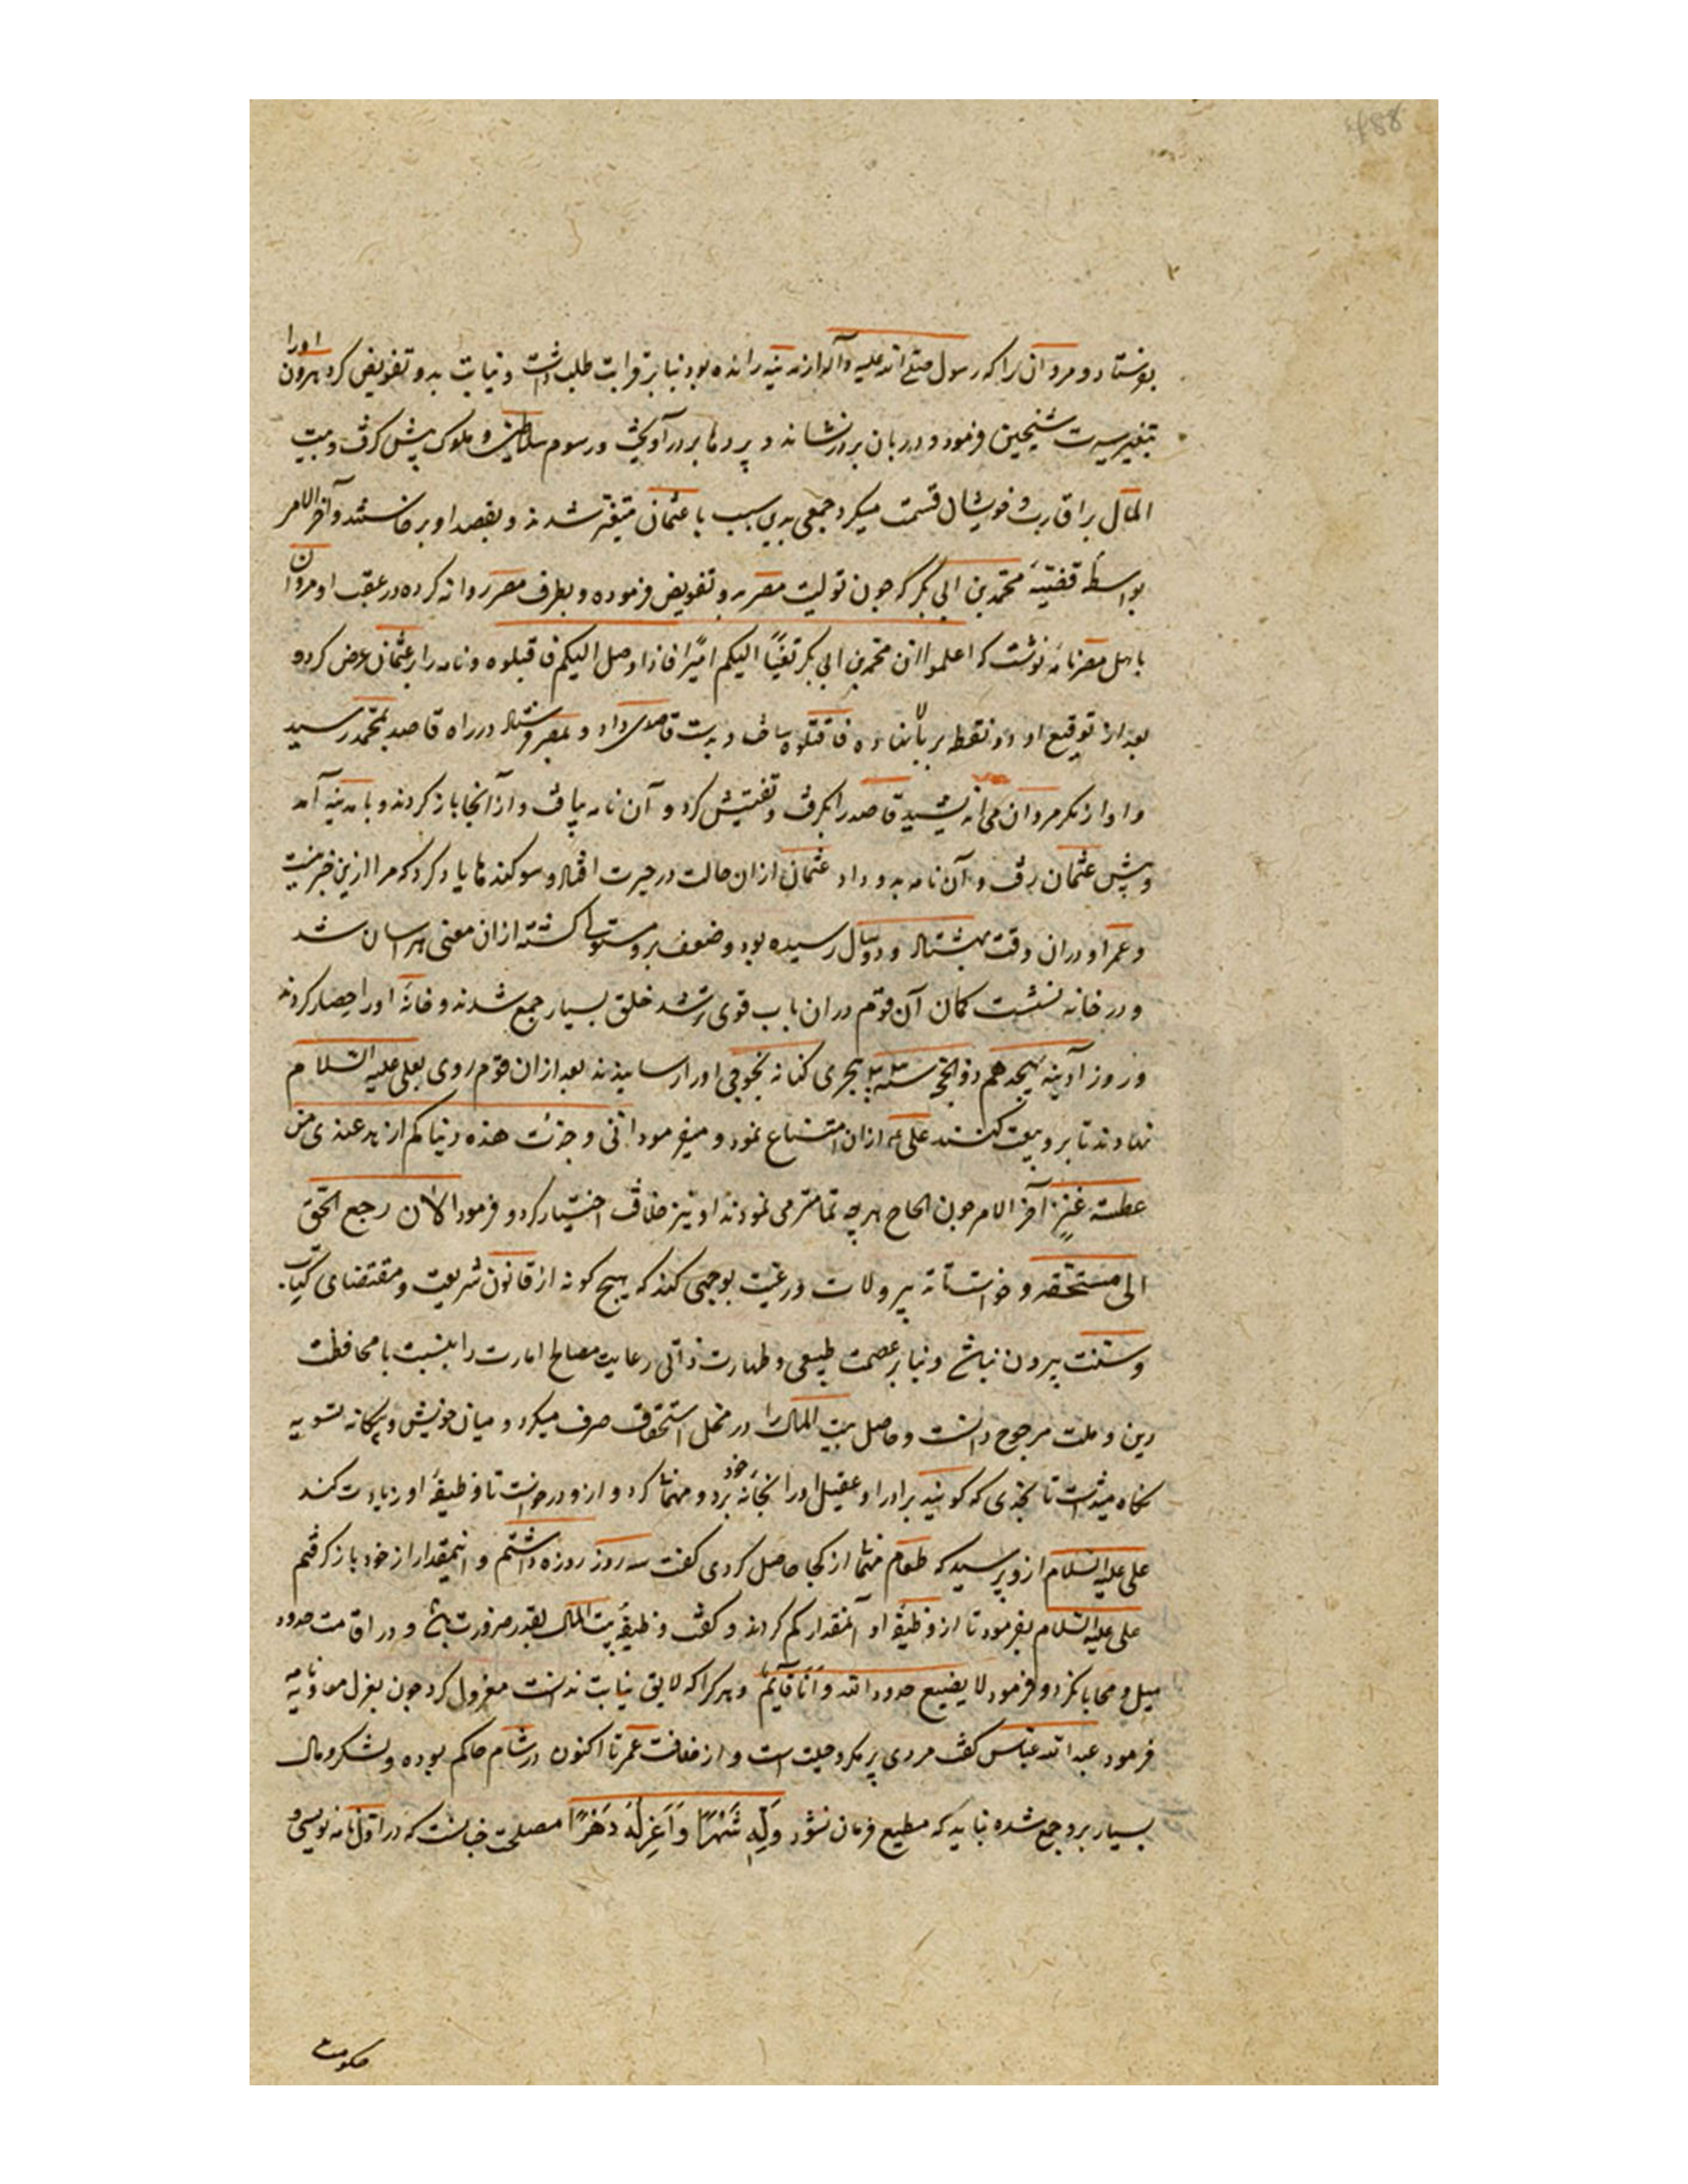 بفرستاد و مروان را که رسول صلی الله علیه وآله از مدینه رانده بود بنا بر قرابت طلب داشت و نیابت بدو تفویض کرد مروان او را
تغییر سیرت شیخین فرمود و دربان بر در نشاند و پردها بر در آویخت و رسوم سلاطین و ملوک پیش گرفت و بیت
المال بر اقارب و خویشان قسمت میکرد جمعی بدین سبب با عثمان متغیر شدند و بقصد او برخاستند و آخر الامر
بواسطهٔ قضیهٔ محمد بن ابی بکر که چون تولیت مصر برو تفویض فرموده و بطرف مصر روانه کرده در عقب او مروان
باهل مصر نامه نوشت که اعلموا ان محمد بن ابی بکر الیکم امیرا فاذا وصل الیکم فاقبلوه و نامه را بر عثمان عرض کرد و
بعد از توقیع او دو نقطه بر بالا نهاده فاقتلوه ساخت و بدست قاصدی داد و بمصر فرستاد در راه قاصد بمحمد رسید
و او از مکر مروان می اندیشید قاصد را بگرفت و تفتیش کرد و آن نامه بیافت و از آنجا باز کردند و بامدینه آمد
و پیش عثمان رفت و آن نامه بدو داد عثمان ازان حالت در حیرت افتاد و سوکندها یاد کرد که مرا ازین خبر نیست
و عمر او دران وقت بهشتاد و دو سال رسیده بود و ضعف برو مستولی کشته ازان معنی هراسان شد
و در خانه نشست کمان آن قوم دران باب قوی تر شد خلق بسیار جمع شدند و خانهٔ او را حصار کردند
و روز آدینه هیجدهم ذو الحجه سنه هجری کنانه تجوجی او را رسانیدند بعد ازان قوم روی بعلی علیه السلام
نهادند تا برو بیعت کنند علی ازان امتناع نمود و میفرمود انی وجدت هذه دنیاکم ازهد عندی من
عطسه عنز آخر الامر چون الحاح هرچه تمامتر می نمودند او نیز خلافت اختیار کرد و فرمود الان رجع الحق
الی مستحقه و خواست تا تدبیر ولات و رعیت بوجهی کند که هیچ کونه از قانون شریعت و مقتضای کتاب
و سنت بیرون نباشد و بنا بر عصمت طبیعی و طهارت ذاتی رعایت مصالح امارت را بنسبت با محافظت
دین و ملت مرجوح دانست و حاصل بیت المال را در محل استحقاق صرف میکرد و میان خویش و بیکانه تسویه
نگاه میداشت تا بحدی که کویند برادر او عقیل او را بخانهٔ خود برد و مهمان کرد و ازو درخواست تا وظیفهٔ او زیادت کند
علی علیه السلام ازو پرسید که طعام مهمان از کجا حاصل کردی کفت سه روز روزه داشتم و اینمقدار از خود باز کرفتم
علی علیه السلام بفرمود تا از وظیفهٔ او آنمقدار کم کردند و کفت وظیفهٔ بیت المال بقدر ضرورت باشد و در اقامت حدود
میل و محابا نکرد و فرمود لا یضیع حدود الله و انا قایم و هر کرا که لایق نیابت ندانست معزول کرد چون بعزل معاویه نامه
فرمود عبد الله عباس کفت مردی پر مکر و حیلت است و از خلافت عمر تا اکنون در شام حاکم بوده و لشکر و مال
بسیار برو جمع شده نباید که مطیع فرمان نشود وَلِّهِ شَهْرًا وَاَعْزِلْهُ دَهْرًا مصلحت چنانست که در اول نامه نویسی و
حکومت